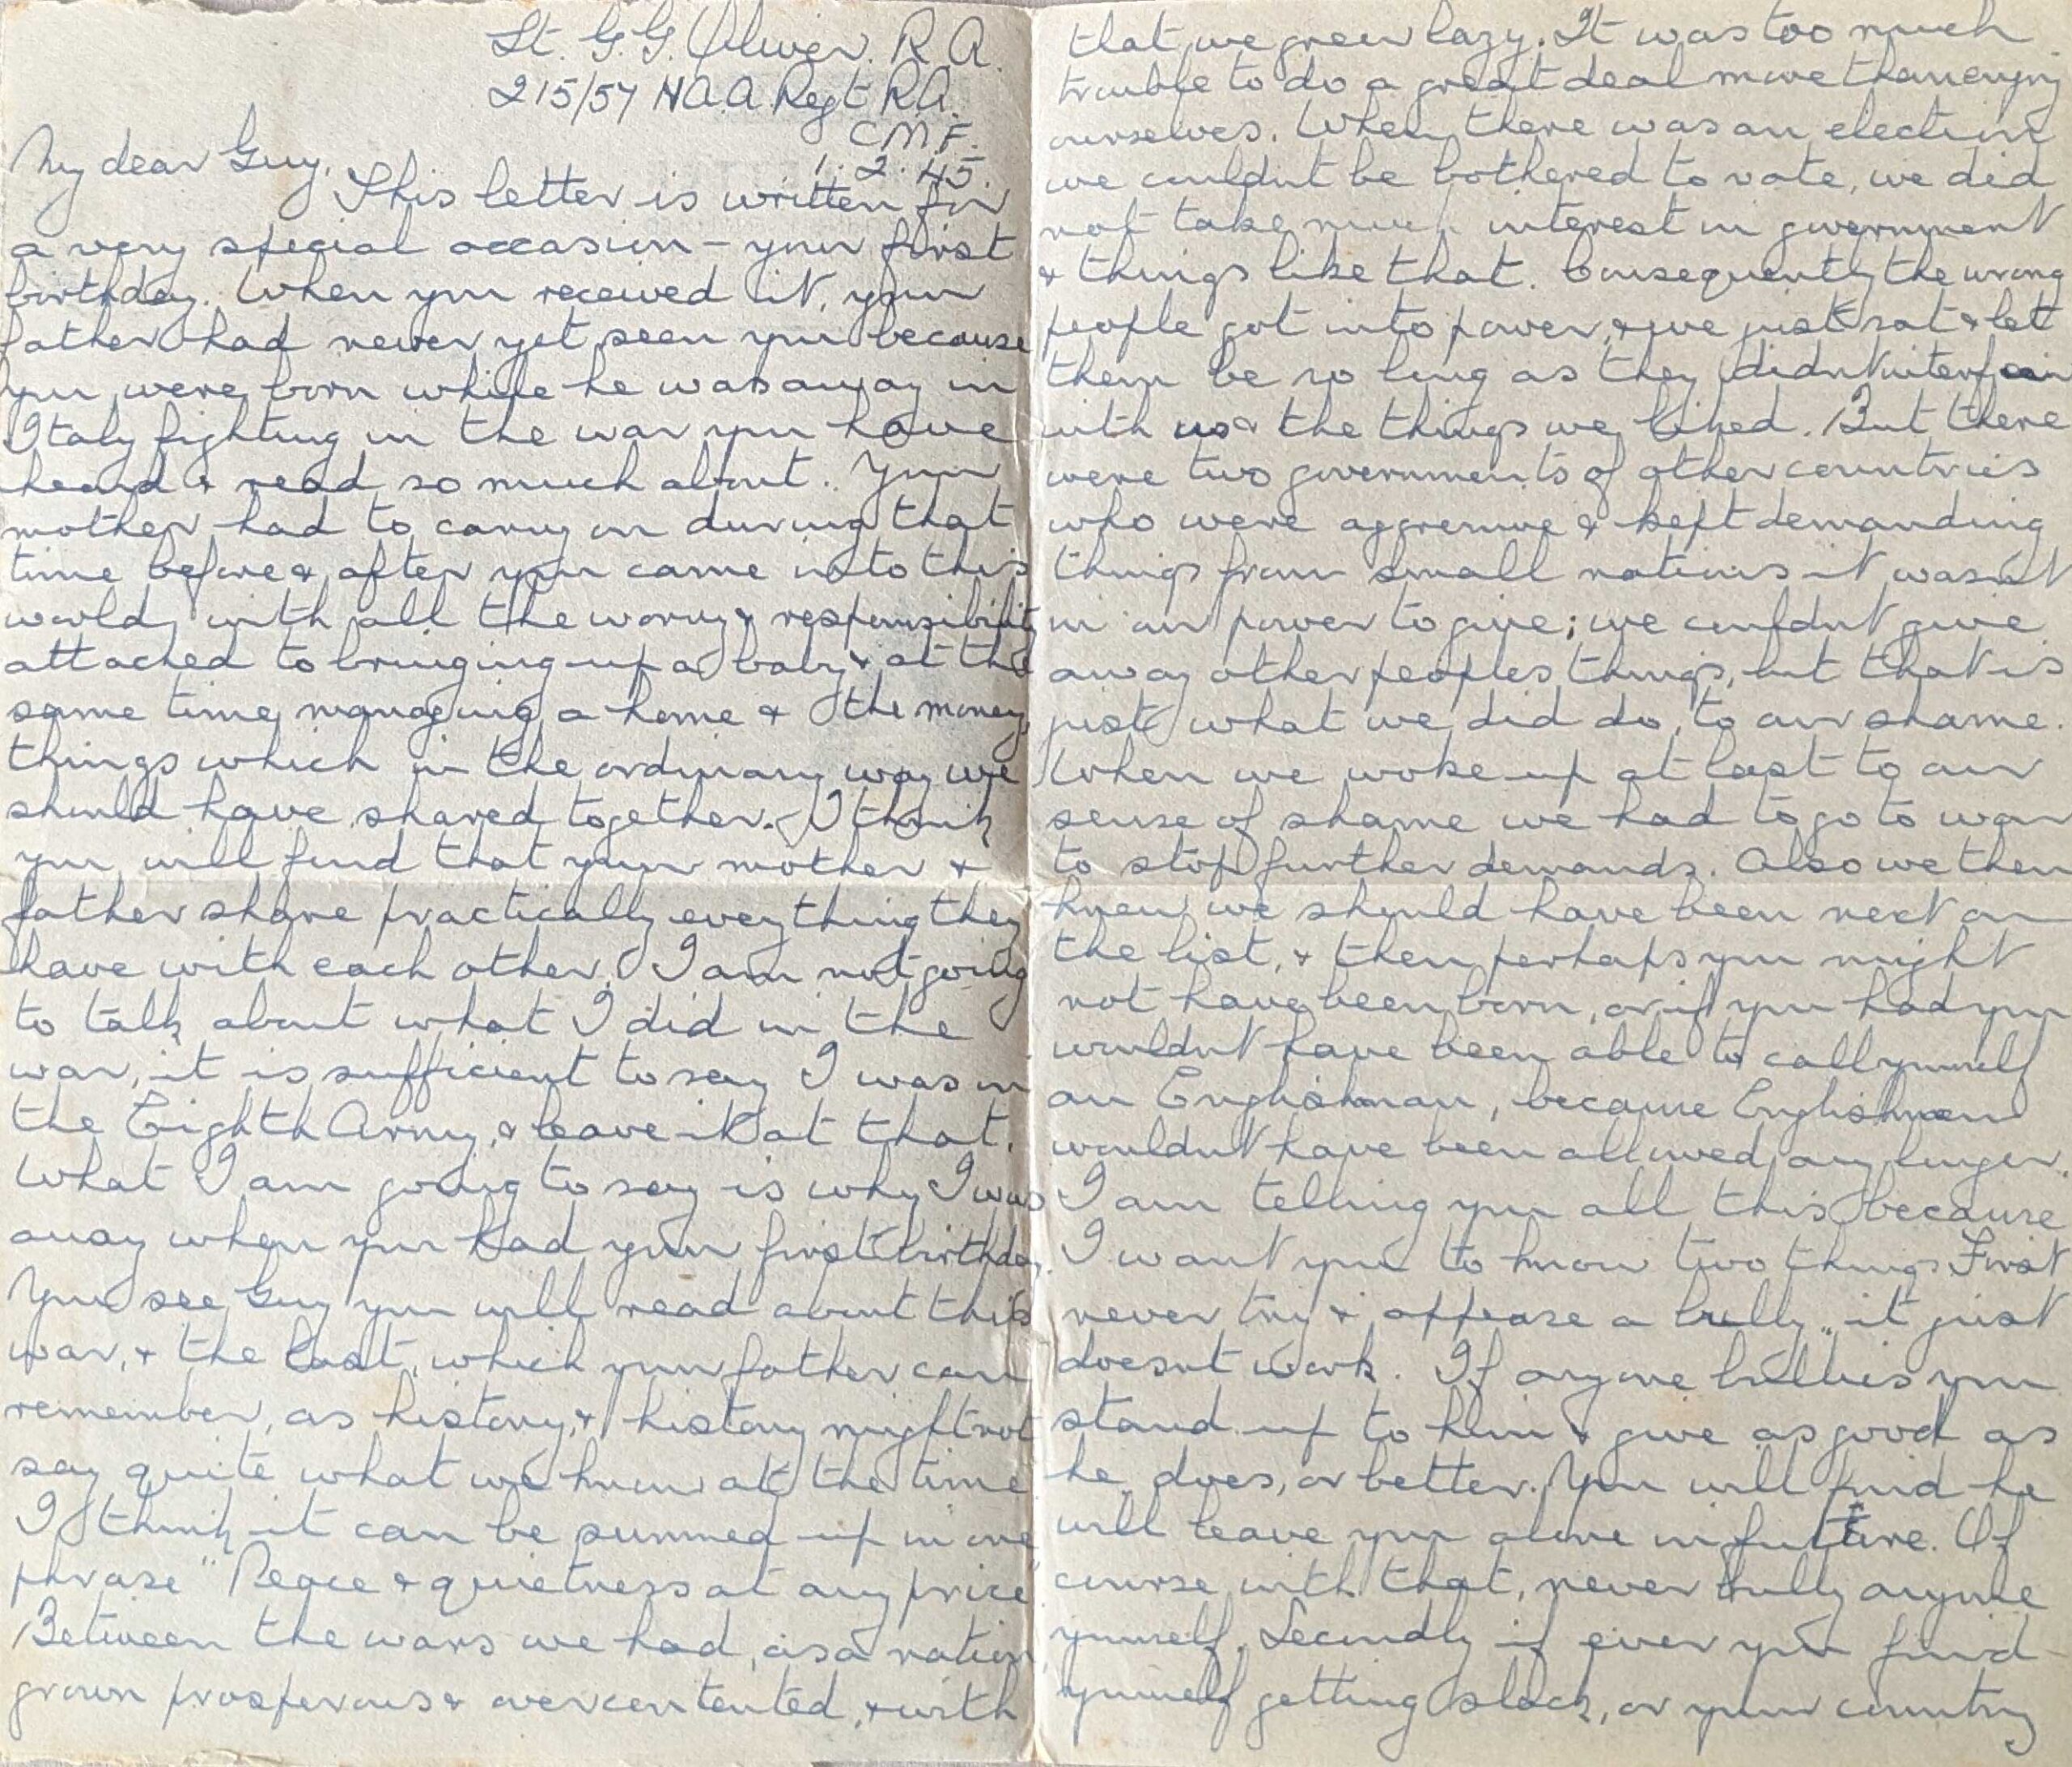 Lt. G.G. Oliver. R.A.
215/57 HAA Regt RA.
CMF.
1. 2. 45.
My dear Guy,
This letter is written for
a very special occasion - your first
birthday. When you received it, your
father had never yet seen you because
you were born while he was away in
Italy fighting in the war you have
heard & read so much about. Your
mother had to carry on during that
time before & after you came into this
world, with all the worry & responsibility
attached to bringing up a baby & at the
same time managing a home & the money,
things which in the ordinary way we
should have shared together. I think
you will find that your mother &
father share practically everything they
have with each other. I am not going
to talk about what I did in the
war, it is sufficient to say I was in
the Eighth Army, & leave it at that.
What I am going to say is why I was
away when you had your first birthday.
You see Guy you will read about this
war, & the last, which your father can
remember, as history, & history might not
say quite what we knew at the time
I think it can be summed up in one
phrase "Peace & quietness at any price"
Between the wars we had, as a nation,
grown prosperous & overcontented, & with
that we grew lazy. It was too much
trouble to do a great deal more than enjoy
ourselves. When there was an election
we couldnt be bothered to vote, we did
not take much interest in government
& things like that. Consequently the wrong
people got into power, & we just sat & let
them be so long as they didnt interfere
with us & the things we liked. But there
were two governments of other countries
who were aggressive & kept demanding
things from small nations it wasnt
in our power to give; we couldnt give
away other peoples things, but that is
just what we did do, to our shame.
When we woke up at last to our
sense of shame we had to go to war
to stop further demands. Also we then
knew we should have been next on
the list, & then perhaps you might
not have been born, or if you had you
wouldnt have been able to call yourself
an Englishman, because Englishmen
wouldnt have been allowed any longer.
I am telling you all this because
I want you to know two things First
never try & appease a bully, it just
doesnt work. If anyone bullies you
stand up to him & give as good as
he does, or better. You will find he
will leave you alone in future. Of
course with that, never bully anyone
yourself. Secondly if ever you find
yourself getting slack, or your country